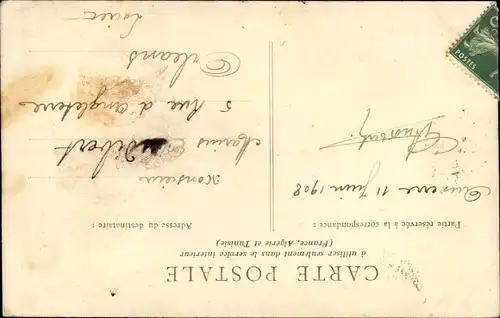 CARTE POSTALE
à utiliser seulement dans le service intérieur
(France, Algérie et Tunisie)
Partie réservée à la correspondance :
Adresse du destinataire :
11 Juin 1908
Monsieur
Marius
5 Rue d'angleterre
Orléans
Loiret
POSTES